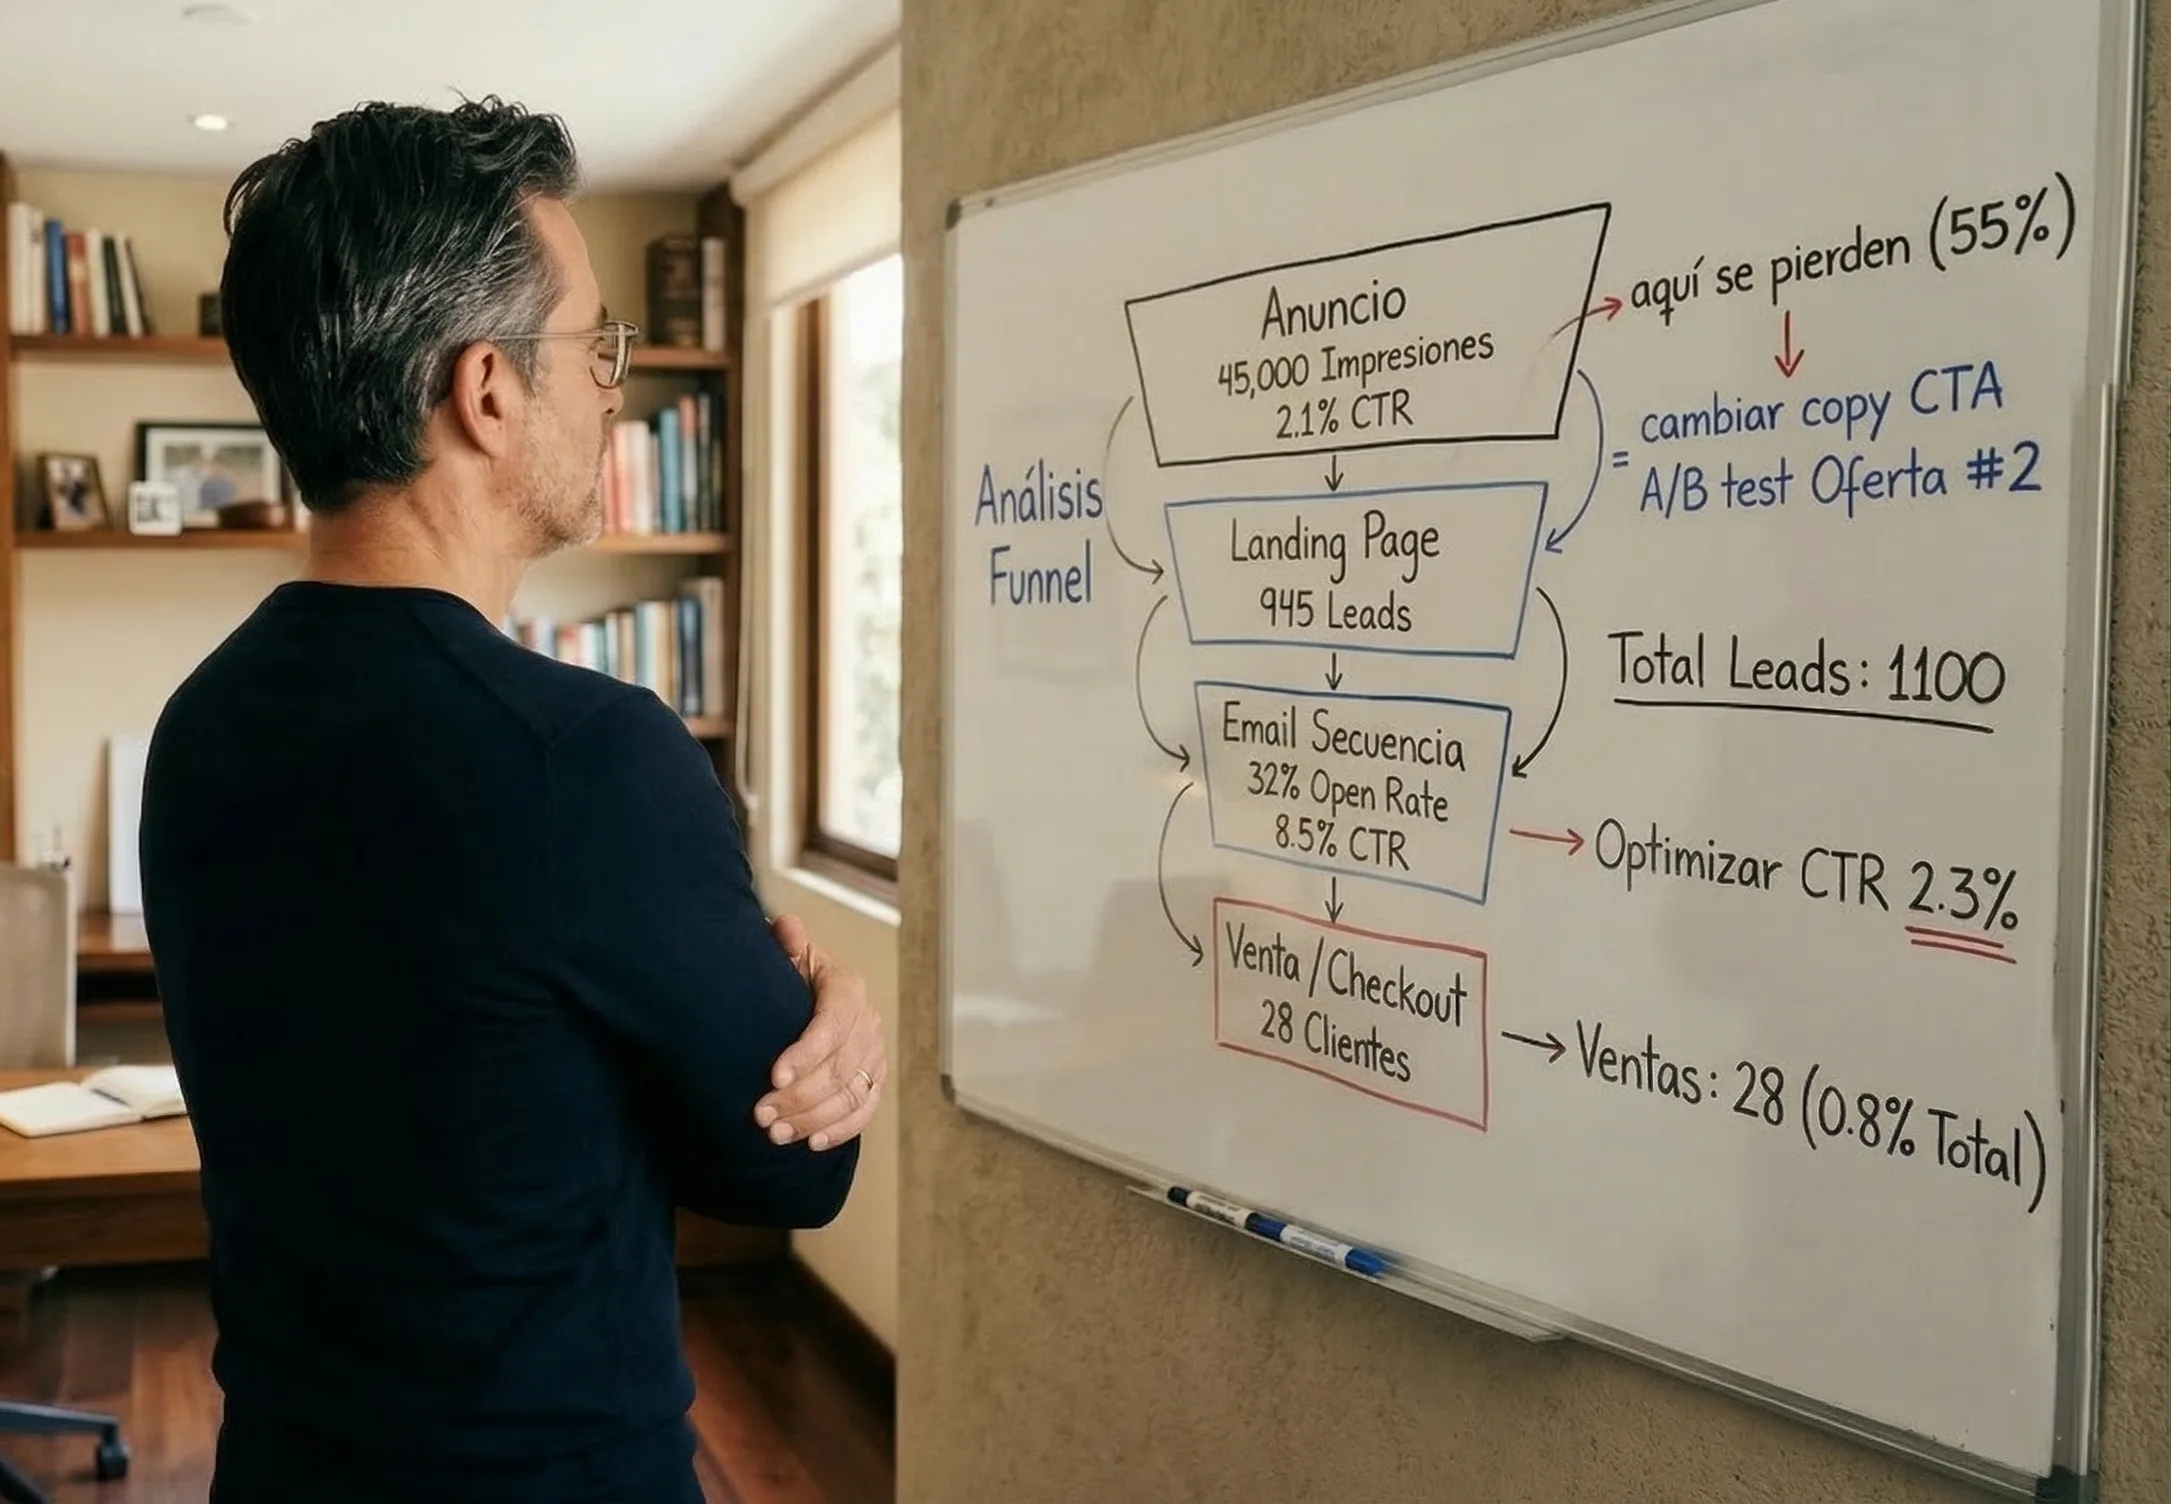 Análisis
Funnel
Anuncio
45,000 Impresiones
2.1% CTR
aquí se pierden (55%)
= cambiar copy CTA
A/B test Oferta #2
Landing Page
945 Leads
Total Leads: 1100
Email Secuencia
32% Open Rate
8.5% CTR
Optimizar CTR 2.3%
Venta / Checkout
28 Clientes
Ventas: 28 (0.8% Total)